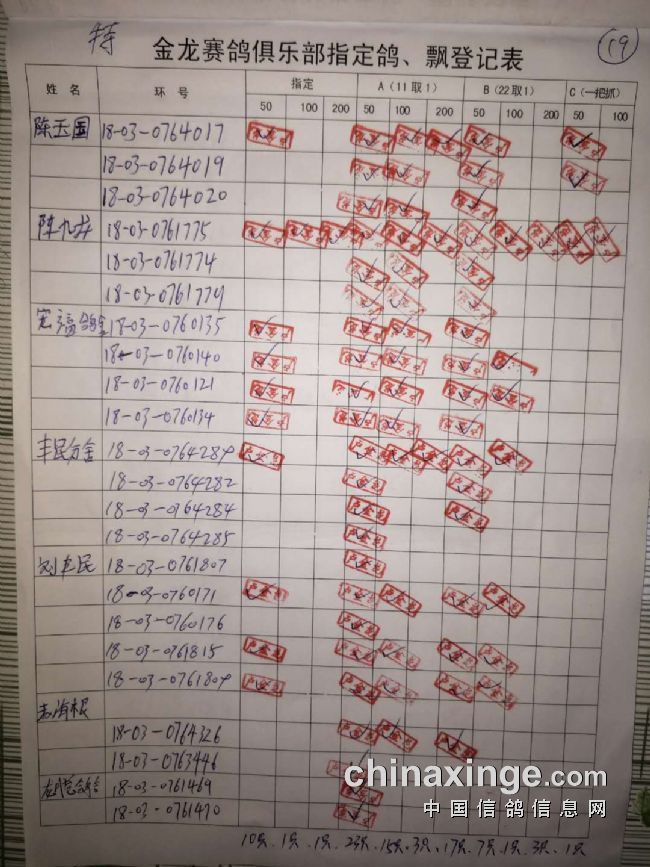 特
19
金龙赛鸽俱乐部指定鸽、飘登记表
姓名 环号 指定 A(11取1) B(22取1) C(一把抓)
50 100 200 50 100 200 50 100 200 50 100
陈玉国 18-03-0764017
18-03-0764019
18-03-0764020
陈九龙 18-03-0761775
18-03-0761774
18-03-0761779
鸽舍 18-03-0760135
18-03-0760140
18-03-0760121
18-03-0760134
丰民方金 18-03-0764289
18-03-0764282
18-03-0764284
18-03-0764285
刘 民 18-03-0761807
18-03-0760171
18-03-0760176
18-03-0761815
18-03-0761809
18-03-0764326
18-03-0763446
18-03-0761469
18-03-0761470
10只. 1只. 1只. 23只. 15只. 3只. 17只. 7只. 1只. 3只. 1只
chinaxinge.com
中国信鸽信息网